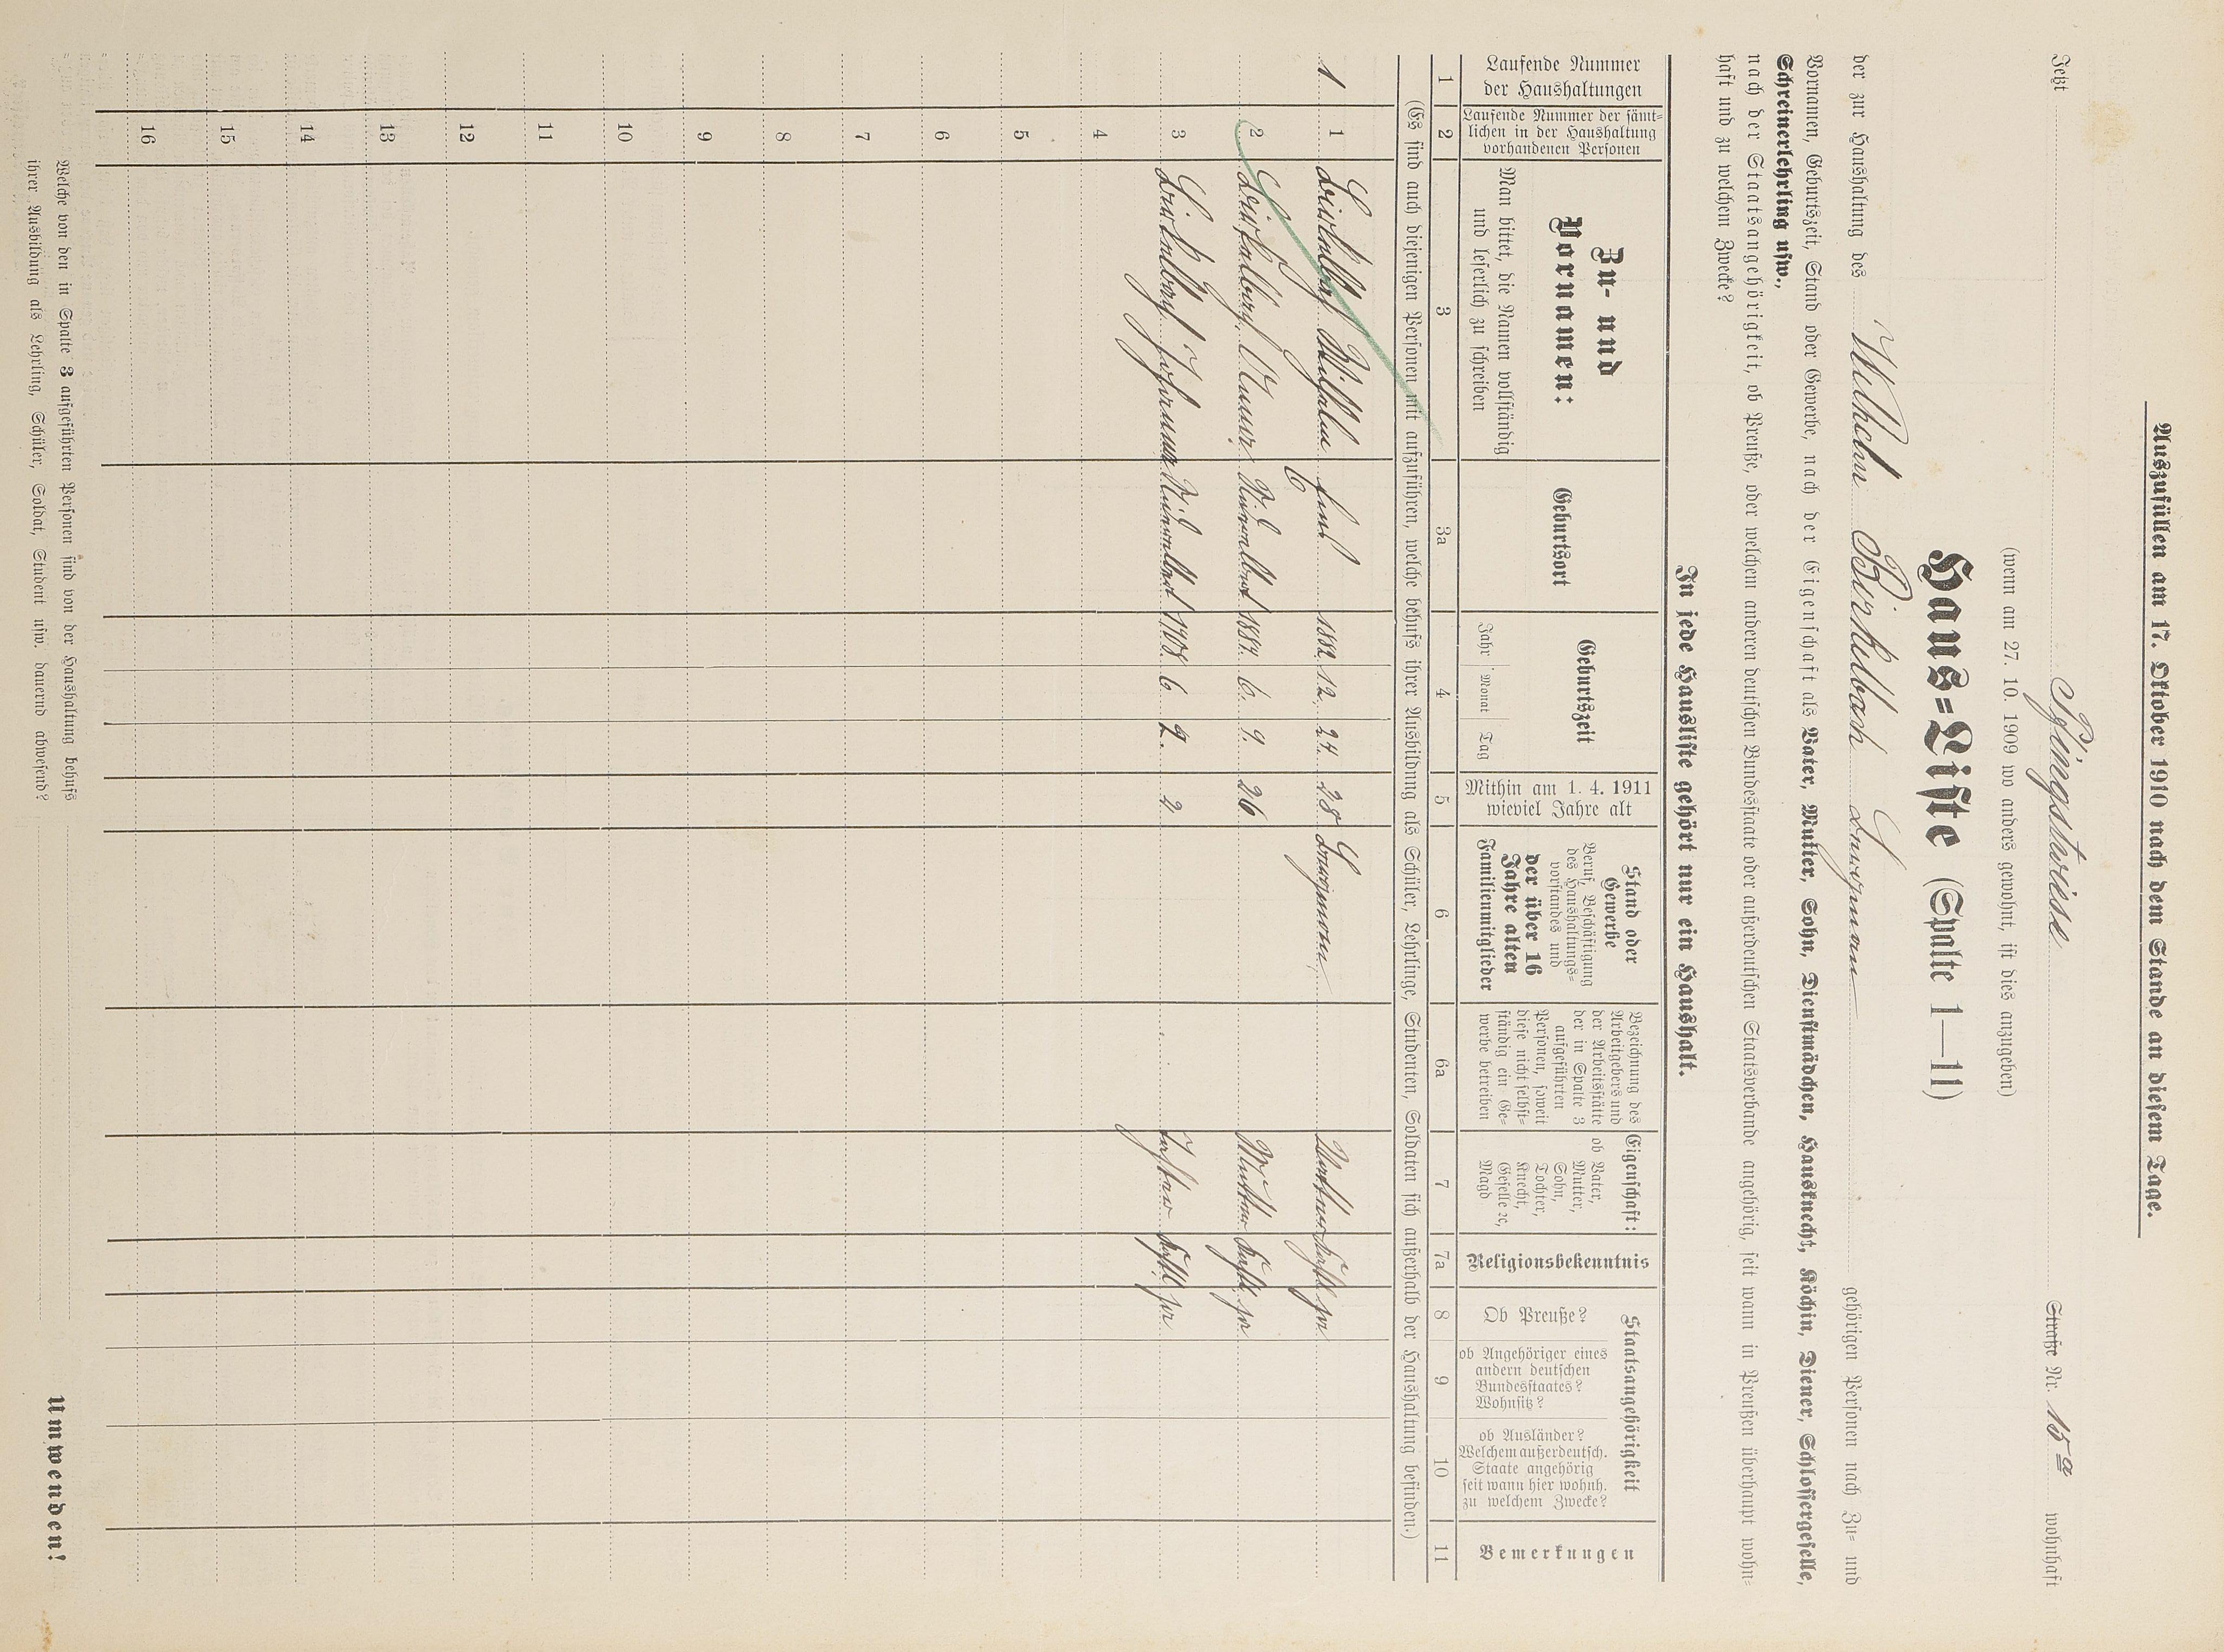 Auszufüllen am 17. Oktober 1910 nach dem Stande an diesem Tage.
Jetzt Pfingstwiese Straße Nr. 15a wohnhaft
(wenn am 27. 10. 1909 wo anders gewohnt, ist dies anzugeben)
Haus-Liste (Spalte 1—11)
der zur Haushaltung des Wilhelm Birkelbach gehörigen Personen nach Zu- und
Vornamen, Geburtszeit, Stand oder Gewerbe, nach der Eigenschaft als Vater, Mutter, Sohn, Dienstmädchen, Hausknecht, Köchin, Diener, Schlossergeselle,
Schreinerlehrling usw.,
nach der Staatsangehörigkeit, ob Preuße, oder welchem anderen deutschen Bundesstaate oder außerdeutschen Staatsverbande angehörig, seit wann in Preußen überhaupt wohn-
haft und zu welchem Zwecke?
In jede Hausliste gehört nur ein Haushalt.
Laufende Nummer
der Haushaltungen
Laufende Nummer der sämt-
lichen in der Haushaltung
vorhandenen Personen
Zu- und
Vornamen:
Man bittet, die Namen vollständig
und leserlich zu schreiben
Geburtsort
Geburtszeit
Jahr Monat Tag
Mithin am 1. 4. 1911
wieviel Jahre alt
Stand oder
Gewerbe
Beruf, Beschäftigung
des Haushaltungs-
vorstandes und
der über 16
Jahre alten
Familienmitglieder
Bezeichnung des
Arbeitgebers und
der Arbeitsstätte
der in Spalte 3
aufgeführten
Personen, soweit
diese nicht selbst-
ständig ein Ge-
werbe betreiben
Eigenschaft:
ob Vater,
Mutter,
Sohn,
Tochter,
Knecht,
Geselle ec,
Magd
Religionsbekenntnis
Staatsangehörigkeit
Ob Preuße?
ob Angehöriger eines
andern deutschen
Bundesstaates?
Wohnsitz?
ob Ausländer?
Welchem außerdeutsch.
Staate angehörig
seit wann hier wohnh.
zu welchem Zwecke?
Bemerkungen
1 2 3 3a 4 5 6 6a 7 7a 8 9 10 11
(Es sind auch diejenigen Personen mit aufzuführen, welche behufs ihrer Ausbildung als Schüler, Lehrlinge, Studenten, Soldaten sich außerhalb der Haushaltung befinden.)
1. 1 Birkelbach Wilhelm 1882. 12. 24. 28 Vater kath. ja
2 Birkelbach, Anna, 1884. 6. 9. 26 Mutter kath. ja
3 Birkelbach Johanna 1908. 6 2. 2 Tochter kath. ja
4
5
6
7
8
9
10
11
12
13
14
15
16
Welche von den in Spalte 3 aufgeführten Personen sind von der Haushaltung behufs
ihrer Ausbildung als Lehrling, Schüler, Soldat, Student usw. dauernd abwesend?
Umwenden!